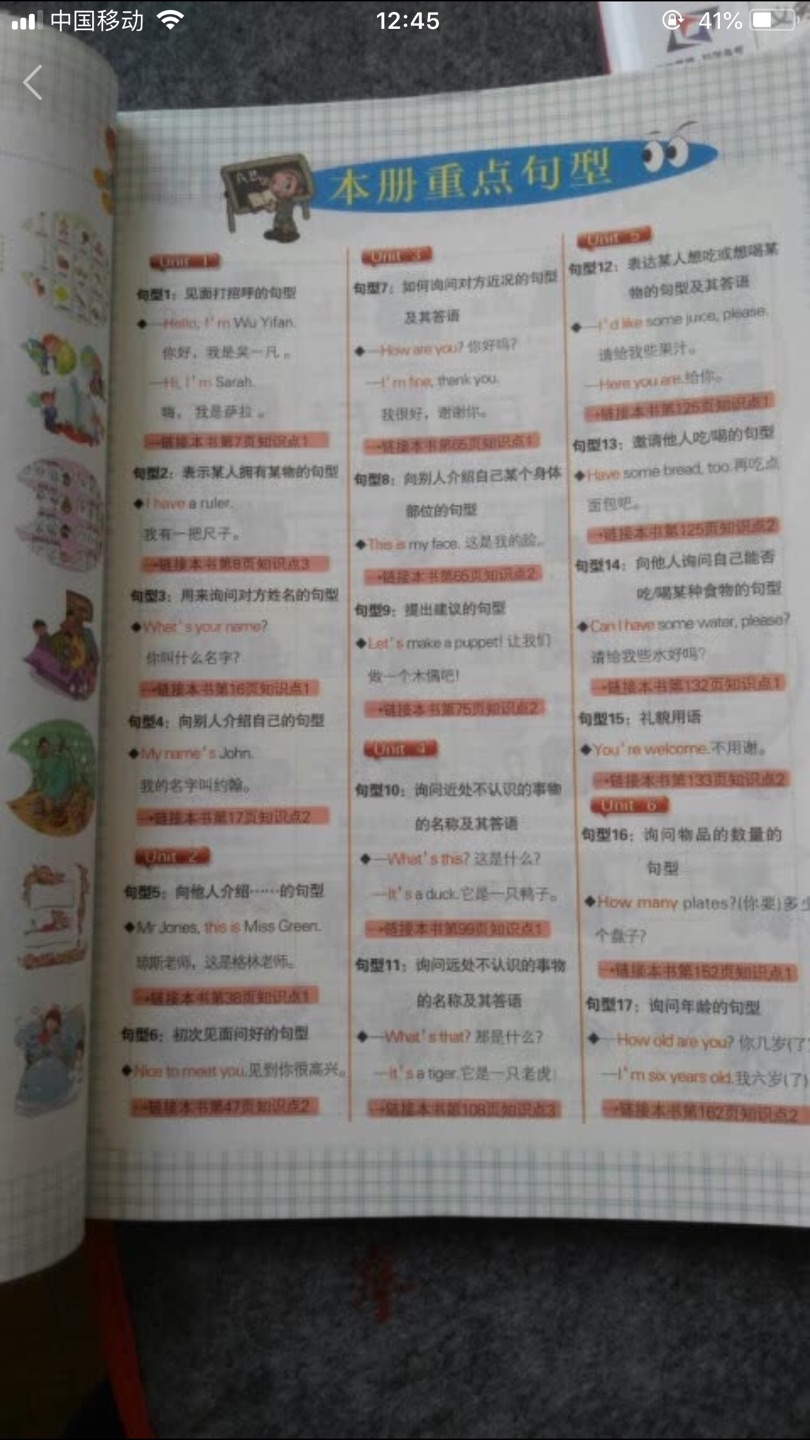 中国移动
12:45
41%
本册重点句型
Unit 1
句型1：见面打招呼的句型
◆—Hello, I'm Wu Yifan.
你好，我是吴一凡。
—Hi, I'm Sarah.
嗨，我是萨拉。
→链接本书第7页知识点1
句型2：表示某人拥有某物的句型
◆I have a ruler.
我有一把尺子。
→链接本书第8页知识点3
句型3：用来询问对方姓名的句型
◆What's your name?
你叫什么名字?
→链接本书第16页知识点1
句型4：向别人介绍自己的句型
◆My name's John.
我的名字叫约翰。
→链接本书第17页知识点2
Unit 2
句型5：向他人介绍……的句型
◆Mr Jones, this is Miss Green.
琼斯老师，这是格林老师。
→链接本书第38页知识点1
句型6：初次见面问好的句型
◆Nice to meet you.见到你很高兴。
→链接本书第47页知识点2
Unit 3
句型7：如何询问对方近况的句型
及其答语
◆—How are you? 你好吗?
—I'm fine, thank you.
我很好，谢谢你。
→链接本书第65页知识点1
句型8：向别人介绍自己某个身体
部位的句型
◆This is my face. 这是我的脸。
→链接本书第65页知识点2
句型9：提出建议的句型
◆Let's make a puppet! 让我们
做一个木偶吧!
→链接本书第75页知识点2
Unit 4
句型10：询问近处不认识的事物
的名称及其答语
◆—What's this? 这是什么?
—It's a duck.它是一只鸭子。
→链接本书第99页知识点1
句型11：询问远处不认识的事物
的名称及其答语
◆—What's that? 那是什么?
—It's a tiger.它是一只老虎
→链接本书第108页知识点3
Unit 5
句型12：表达某人想吃或想喝某
物的句型及其答语
◆—I'd like some juice, please.
请给我些果汁。
—Here you are.给你。
→链接本书第125页知识点1
句型13：邀请他人吃/喝的句型
◆Have some bread, too.再吃点
面包吧。
→链接本书第125页知识点2
句型14：向他人询问自己能否
吃/喝某种食物的句型
◆Can I have some water, please?
请给我些水好吗?
→链接本书第132页知识点1
句型15：礼貌用语
◆You're welcome.不用谢。
→链接本书第133页知识点2
Unit 6
句型16：询问物品的数量的
句型
◆How many plates?(你要)多少
个盘子?
→链接本书第152页知识点1
句型17：询问年龄的句型
◆—How old are you? 你几岁(了
—I'm six years old.我六岁(了)
→链接本书第162页知识点2